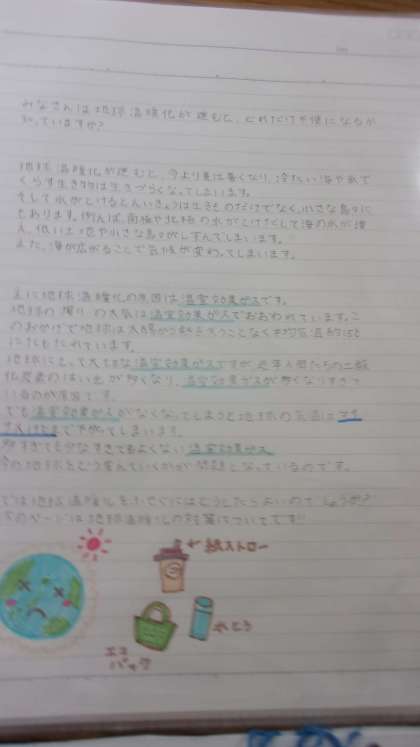 みなさんは地球温暖化が進むと、どれだけ不便になるか
知っていますか?
地球温暖化が進むと、今より夏は暑くなり、冷たい海や氷で
くらす生き物は生きづらくなってしまいます。
そして氷がとけるとえいきょうは生きものだけでなく、小さな島々に
もあります。例えば、南極や北極の氷がとけだして海の水が増
え、低い土地や小さな島々がしずんでしまいます。
また、海が広がることで気候が変わってしまいます。
地球温暖化の原因は温室効果ガスです。
地球の周りの大気は温室効果ガスでおおわれています。こ
のおかげで地球は太陽から熱を
にたもたれています。
地球にとって大切な温室効果ガスですが、近年人間たちの二酸
化炭素のはい出が多くなり、温室効果ガスが多くなりすぎて
いるのが原因です。
でも温室効果ガスがなくなってしまうと地球の気温はマイ
まで下がってしまいます。
多すぎても少なすぎてもよくない温室効果ガス
今の地球とどう
が問題となっているのです。
では地球温暖化をふせぐにはどうしたらよいのでしょうか?
次のページは地球温暖化の対策についてです!!
←紙ストロー
水とう
エコ
バック